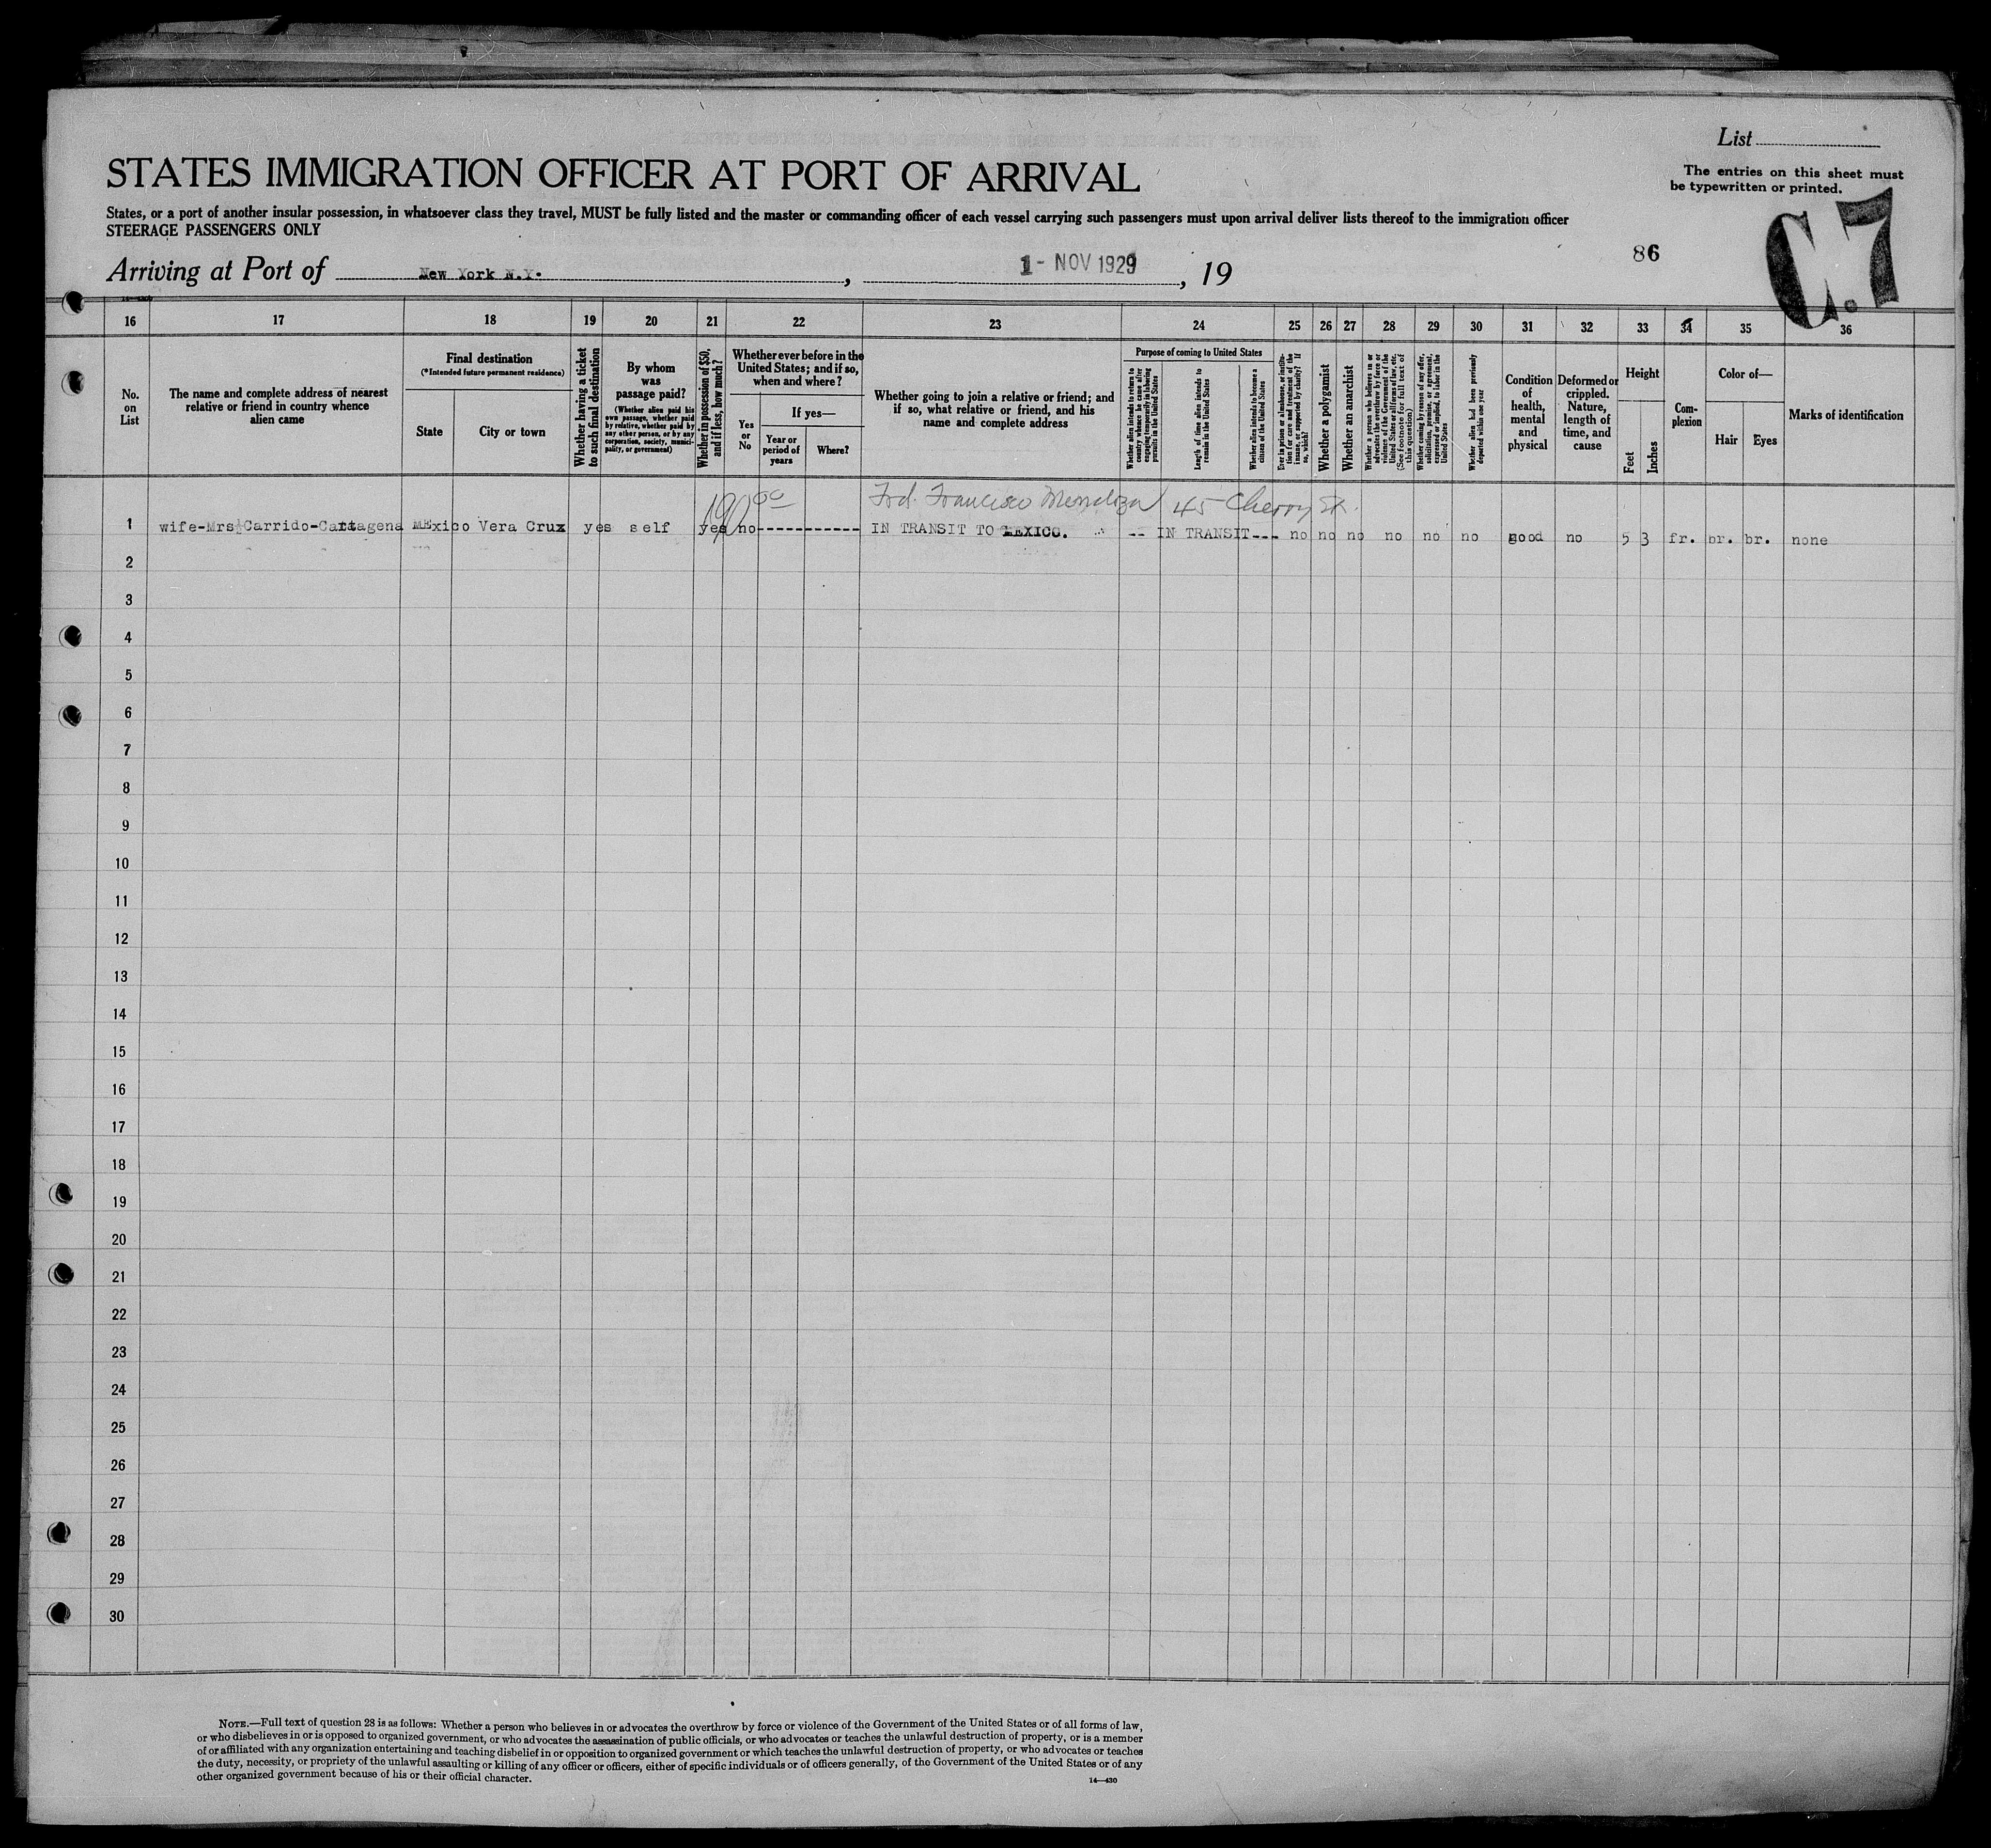 List
STATES IMMIGRATION OFFICER AT PORT OF ARRIVAL
The entries on this sheet must
be typewritten or printed.
States, or a port of another insular possession, in whatsoever class they travel, MUST be fully listed and the master or commanding officer of each vessel carrying such passengers must upon arrival deliver lists thereof to the immigration officer
STEERAGE PASSENGERS ONLY
C.7
86
Arriving at Port of New York N.Y. , 1- NOV 1929 , 19
16 17 18 19 20 21 22 23 24 25 26 27 28 29 30 31 32 33 34 35 36
No. on List
The name and complete address of nearest relative or friend in country whence alien came
Final destination
(*Intended future permanent residence)
State
City or town
Whether having a ticket to such final destination
By whom was passage paid?
(Whether alien paid his own passage, whether paid by relative, whether paid by any other person, or by any corporation, society, municipality, or government)
Whether in possession of $50, and if less, how much?
Whether ever before in the United States; and if so, when and where?
Yes or No
If yes—
Year or period of years
Where?
Whether going to join a relative or friend; and if so, what relative or friend, and his name and complete address
Purpose of coming to United States
Whether alien intends to return to country whence he came after engaging temporarily in laboring pursuits in the United States
Length of time alien intends to remain in the United States
Whether alien intends to become a citizen of the United States
Ever in prison or almshouse, or institution for care and treatment of the insane, or supported by charity? If so, which?
Whether a polygamist
Whether an anarchist
Whether a person who believes in or advocates the overthrow by force or violence of the Government of the United States or all forms of law, etc. (See footnote for full text of this question)
Whether coming by reason of any offer, solicitation, promise, or agreement, expressed or implied, to labor in the United States
Whether alien had been previously deported within one year
Condition of health, mental and physical
Deformed or crippled. Nature, length of time, and cause
Height
Feet
Inches
Com-plexion
Color of—
Hair
Eyes
Marks of identification
190 00
Frd. Francisco Mendoza 45 Cherry St.
1 wife-Mrs Carrido-Cartagena MExico Vera Crux yes self yes no------------ IN TRANSIT TO MEXICO. -- IN TRANSIT--- no no no no no no good no 5 3 fr. br. br. none
2
3
4
5
6
7
8
9
10
11
12
13
14
15
16
17
18
19
20
21
22
23
24
25
26
27
28
29
30
NOTE.—Full text of question 28 is as follows: Whether a person who believes in or advocates the overthrow by force or violence of the Government of the United States or of all forms of law,
or who disbelieves in or is opposed to organized government, or who advocates the assassination of public officials, or who advocates or teaches the unlawful destruction of property, or is a member
of or affiliated with any organization entertaining and teaching disbelief in or opposition to organized government or which teaches the unlawful destruction of property, or who advocates or teaches
the duty, necessity, or propriety of the unlawful assaulting or killing of any officer or officers, either of specific individuals or of officers generally, of the Government of the United States or of any
other organized government because of his or their official character.
14—430